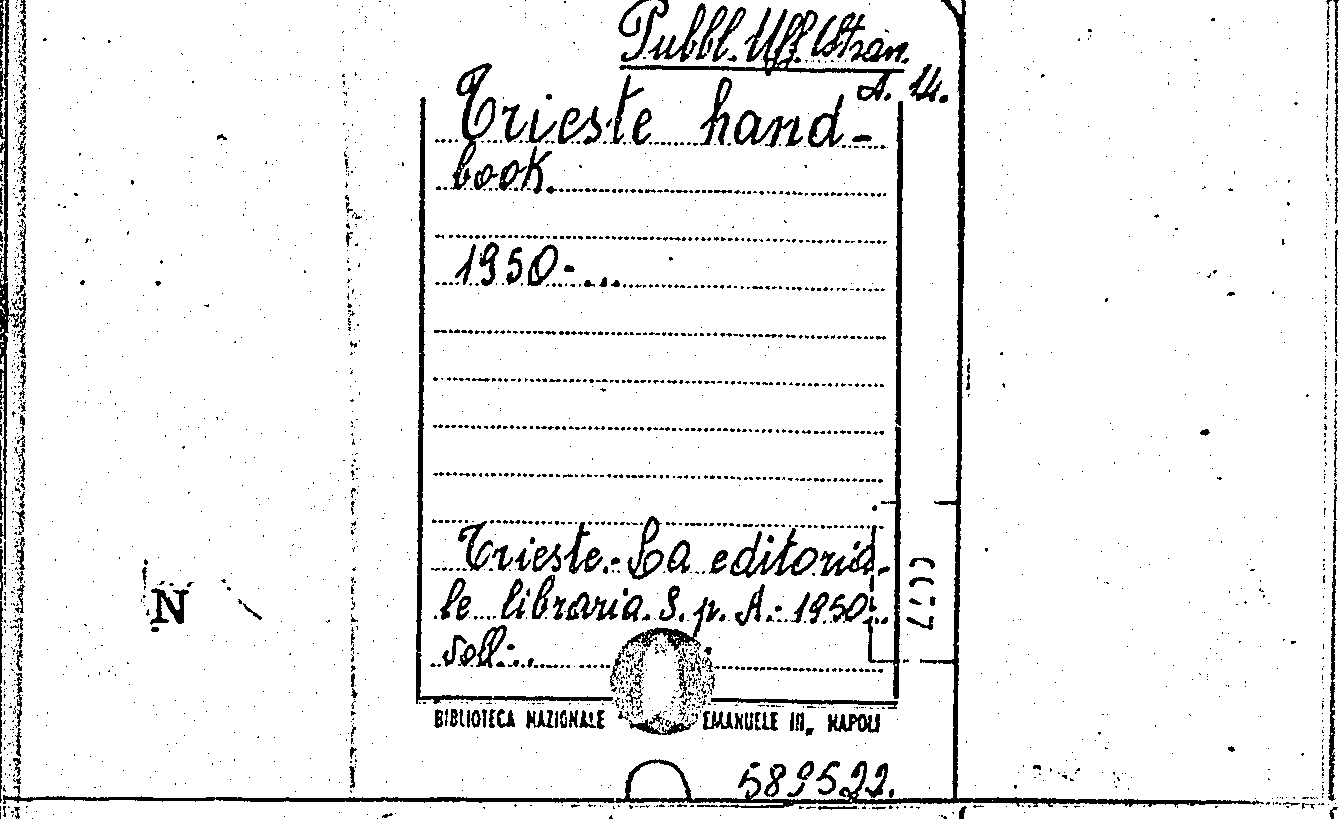 Pubbl. Uff. Stran.
A. 14.
Trieste hand-
book.
1950-...
Trieste.- La editoria-
le libraria. S. p. A.- 1950-..
voll:..
N
BIBLIOTECA NAZIONALE EMANUELE III, NAPOLI
589522.